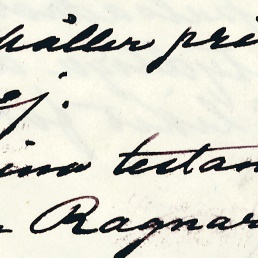 håller pri
ej.
ina testam
Ragnar